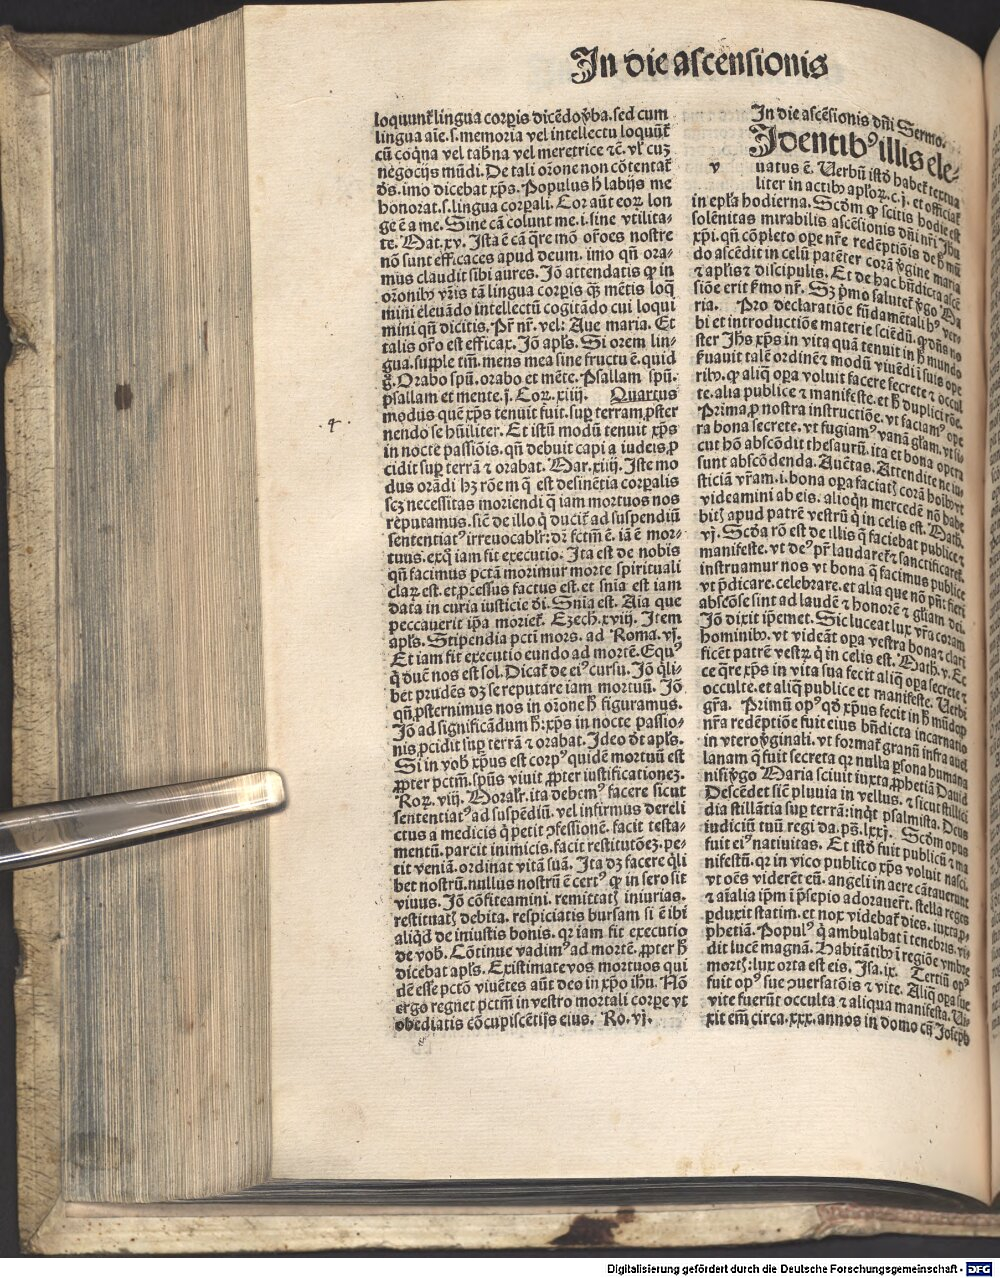 In die ascensionis
loquunt᷑ lingua corꝑis dicẽdo ꝟba. sed cum
lingua aĩe. s. memoria vel intellectu loquũt᷑
cũ coq̃na vel tab̃na vel meretrice ⁊c̃. vl̓ cuꝫ
negocijs mũdi. De tali or̃one non cõtentat᷑
ds̃. imo dicebat xp̃s. Populus h̃ labijs me
honorat. s. lingua corꝑali. Cor aũt eoꝝ lon
ge ẽ a me. Sine cã colunt me. i. sine vtilita⸗
te. Mat. xv. Ista ẽ cã q̃re mõ or̃oes nostre
nõ sunt efficaces apud deum. imo qñ ora⸗
mus claudit sibi aures. Jõ attendatis ꝙ in
or̃onibꝰ vr̃is tã lingua corꝑis q̃ꝫ mẽtis loq̃
mini eleuãdo intellectũ cogitãdo cui loqui
mini qñ dicitis. Pr̃ nr̃. vel: Aue maria. Et
talis or̃o est efficax. Jõ apl̃s. Si orem lin⸗
gua. supple tm̃. mens mea sine fructu ẽ. quid
g̊. Orabo spũ. orabo et mẽte. Psallam spũ.
psallam et mente. j. Cor. xiiij. Quartus
modus quẽ xp̃s tenuit fuit. suꝑ terram ꝓster
nendo se hũiliter. Et istũ modũ tenuit xp̃s
·4·
in nocte passiõis. qñ debuit capi a iudeis ꝓ
cidit suꝑ terrã ⁊ orabat. Mar. xiiij. Iste mo
dus orãdi hꝫ rõem q̃ est desinẽtia corꝑalis
scꝫ necessitas moriendi q̃ iam mortuos nos
reputamus. sic̃ de illo q̃ ducit᷑ ad suspendiũ
sententiatꝰ irreuocabl̃r: dr̃ fctm̃ ẽ. iã ẽ mor⸗
tuus. exq̃ iam fit executio. Ita est de nobis
qñ facimus pctã morimur morte spirituali
claꝝ est. et ꝓcessus factus est. et snĩa est iam
data in curia iusticie di. Snĩa est. Aĩa que
peccauerit ip̃a moriet᷑. Ezech. xviij. Item
apl̃s. Stipendia pcti mors. ad Roma. vj.
Et iam fit executio eundo ad mortẽ. Equꝰ
q̃ duc̃ nos est sol. Dicat᷑ de eiꝰ cursu. Jõ q̃li
bet prudẽs dꝫ se reputare iam mortuũ. Jõ
qñ ꝓsternimus nos in or̃one h̃ figuramus.
Jõ ad significãdum h̃: xp̃s in nocte passio⸗
nis ꝓcidit suꝑ terrã ⁊ orabat. Ideo dt̃ apl̃s.
Si in vob̃ xp̃us est corpꝰ quidẽ mortuũ est
ꝓpter pctm̃. spũs viuit ꝓpter iustificationeꝫ.
Roꝝ. viij. Moral̃r. ita debemꝰ facere sicut
sententiatꝰ ad suspẽdiũ. vel infirmus dereli
ctus a medicis q̃ petit ɔfessionẽ. facit testa⸗
mentũ. parcit inimicis. facit restitutõeꝫ. pe⸗
tit veniã. ordinat vitã suã. Ita dꝫ facere q̃li
bet nostrũ. nullus nostrũ ẽ certꝰ ꝙ in sero sit
viuus. Jõ cõfiteamini. remittatꝭ iniurias.
restituatꝭ debita. respiciatis bursam si ẽ ibi
aliq̃d de iniustis bonis. qꝛ iam fit executio
de vob̃. Cõtinue vadimꝰ ad mortẽ. ꝓpter h̃
dicebat apl̃s. Existimate vos mortuos qui
dẽ esse pctõ viuẽtes aũt deo in xp̃o ihũ. Nõ
ergo regnet pctm̃ in vestro mortali corꝑe vt
obediatis cõcupiscẽtijs eius. Ro. vj.
In die ascẽsionis dñi Sermo.
v
Identibꝰ illis ele⸗
uatus ẽ. Verbũ istd̃ habet᷑ textua
liter in actibꝰ apl̃oꝝ. c. j. et officiat᷑
in epl̃a hodierna. Scd̃m ꝙ scitis hodie est
solẽnitas mirabilis ascẽsionis dñi nr̃i Jhũ
xp̃i. qñ cõpleto oꝑe nr̃e redẽptiõis de h̃ mũ
do ascẽdit in celũ patẽter corã ꝟgine maria
⁊ apl̃is ⁊ discipulis. Et de hac bñdicta ascẽ
siõe erit ẜmo nr̃. Sꝫ pͥmo salutet᷑ ꝟgo Ma
ria. Pro declaratiõe fũdamẽtali hꝰ ver⸗
bi et introductiõe materie sciẽdũ. ꝙ dñs no
ster Jhs xp̃s in vita quã tenuit in h̃ mundo
ẜuauit talẽ ordinẽ ⁊ modũ viuẽdi ĩ suis oꝑe
ribꝰ. ꝙ aliq̃ oꝑa voluit facere secrete ⁊ occul
te. alia publice ⁊ manifeste. et h̃ duplici rõe.
Prima ꝓ nostra instructiõe. vt faciamꝰ oꝑe
ra bona secrete. vt fugiamꝰ vanã gl̃iam. vt si
cut hõ abscõdit thesaurũ. ita et bona opera
sunt abscõdenda. Auc̃tas. Attendite ne iu⸗
sticiã vr̃am. i. bona oꝑa faciatꝭ corã hoĩbꝰ vt
videamini ab eis. alioqn̄ mercedẽ nõ habe
bitꝭ apud patrẽ vestrũ q̃ in celis est. Math.
vj. Scd̃a rõ est de illis q̃ faciebat publice ⁊
manifeste. vt deꝰ pr̃ laudaret᷑ ⁊ sanctificaret᷑.
instruamur nos vt bona q̃ facimus publice
vt p̃dicare. celebrare. et alia que nõ pñt fieri
abscõse sint ad laudẽ ⁊ honorẽ ⁊ gl̃iam dei.
Jõ dixit ip̃emet. Sic luceat lux vr̃a coram
hominibꝰ. vt videãt oꝑa vestra bona ⁊ clari
ficẽt patrẽ vestꝝ q̃ in celis est. Math. v. Ec
ce q̃re xp̃s in vita sua fecit aliq̃ oꝑa secrete ⁊
occulte. et aliq̃ publice et manifeste. Verbi
gr̃a. Primũ opꝰ qd̃ xp̃us fecit in h̃ mũdo ꝓ
nr̃a redẽptiõe fuit eius bñdicta incarnatio
in vtero ꝟginali. vt format᷑ granũ infra auel
lanam q̃ fuit secreta qꝛ nulla ꝑsona humana
nisi ꝟgo Maria sciuit iuxta ꝓphetiã Dauid
Descẽdet sic̃ pluuia in vellus. ⁊ sicut stillici
dia stillãtia suꝑ terrã: inq̃t psalmista. Deus
iudiciũ tuũ regi da. ps̃. lxxj. Scd̃m opus
fuit eiꝰ natiuitas. Et istd̃ fuit publicũ ⁊ ma
nifestũ. qꝛ in vico publico xp̃s voluit nasci.
vt oẽs viderẽt eũ. angeli in aere cãtauerunt
⁊ aĩalia ip̃m ĩ p̃sepio adorauer̃t. stella reges
ꝑduxit statim. et nox videbat᷑ dies. iuxta ꝓ⸗
phetiã. Populꝰ q̃ ambulabat ĩ tenebris. vi⸗
dit lucẽ magnã. Habitãtibꝰ ĩ regiõe vmbre
mortꝭ: lux orta est eis. Isa. ix. Tertiũ opꝰ
fuit opꝰ sue ɔuersatõis ⁊ vite. Aliq̃ oꝑa sue
vite fuerũt occulta ⁊ aliqua manifesta. Vi⸗
xit em̃ circa. xxx. annos in domo cũ Joseph
Digitalisierung gefördert durch die Deutsche Forschungsgemeinschaft - DFG